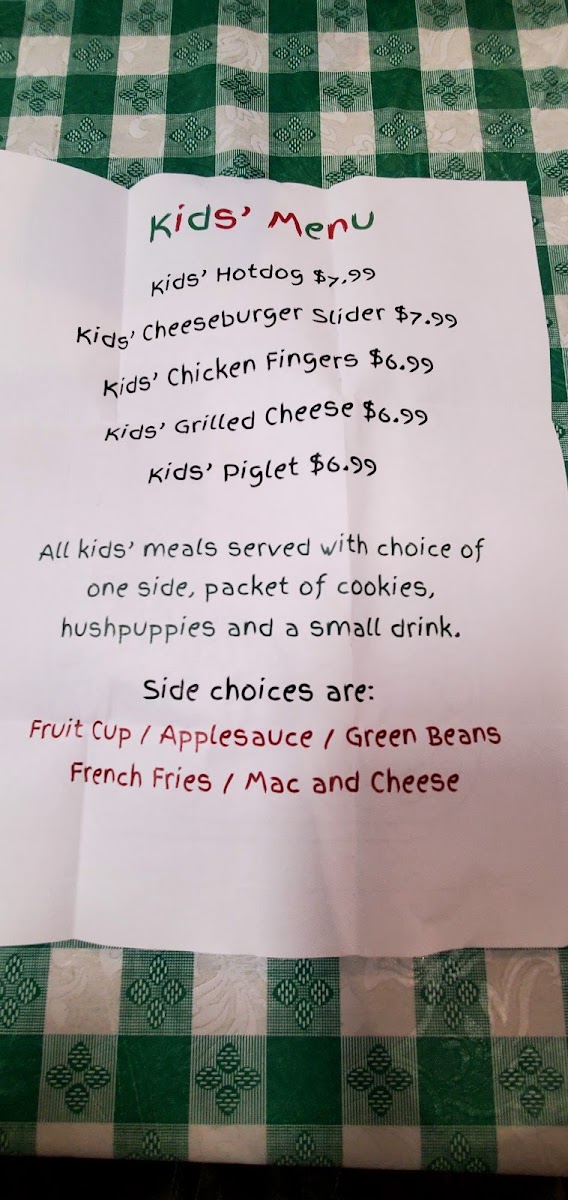 Kids' Menu
Kids' Hotdog $7.99
Kids' Cheeseburger Slider $7.99
Kids' Chicken Fingers $6.99
Kids' Grilled Cheese $6.99
Kids' Piglet $6.99
All kids' meals served with choice of
one side, packet of cookies,
hushpuppies and a small drink.
Side choices are:
Fruit Cup / Applesauce / Green Beans
French Fries / Mac and Cheese